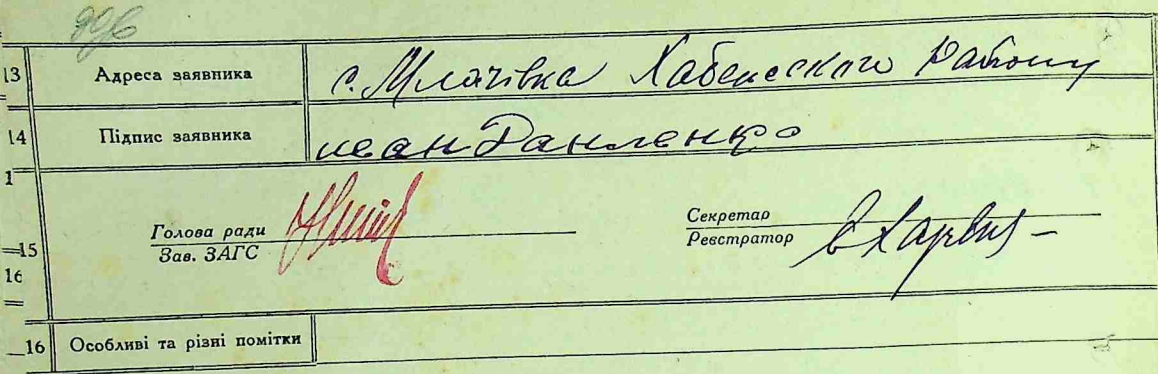 13 Адреса заявника с. Млачівка Хабенського Району
14 Підпис заявника иван Данленко
1
Голова ради
Зав. ЗАГС
Секретар
Реєстратор
15
16
16 Особливі та різні помітки